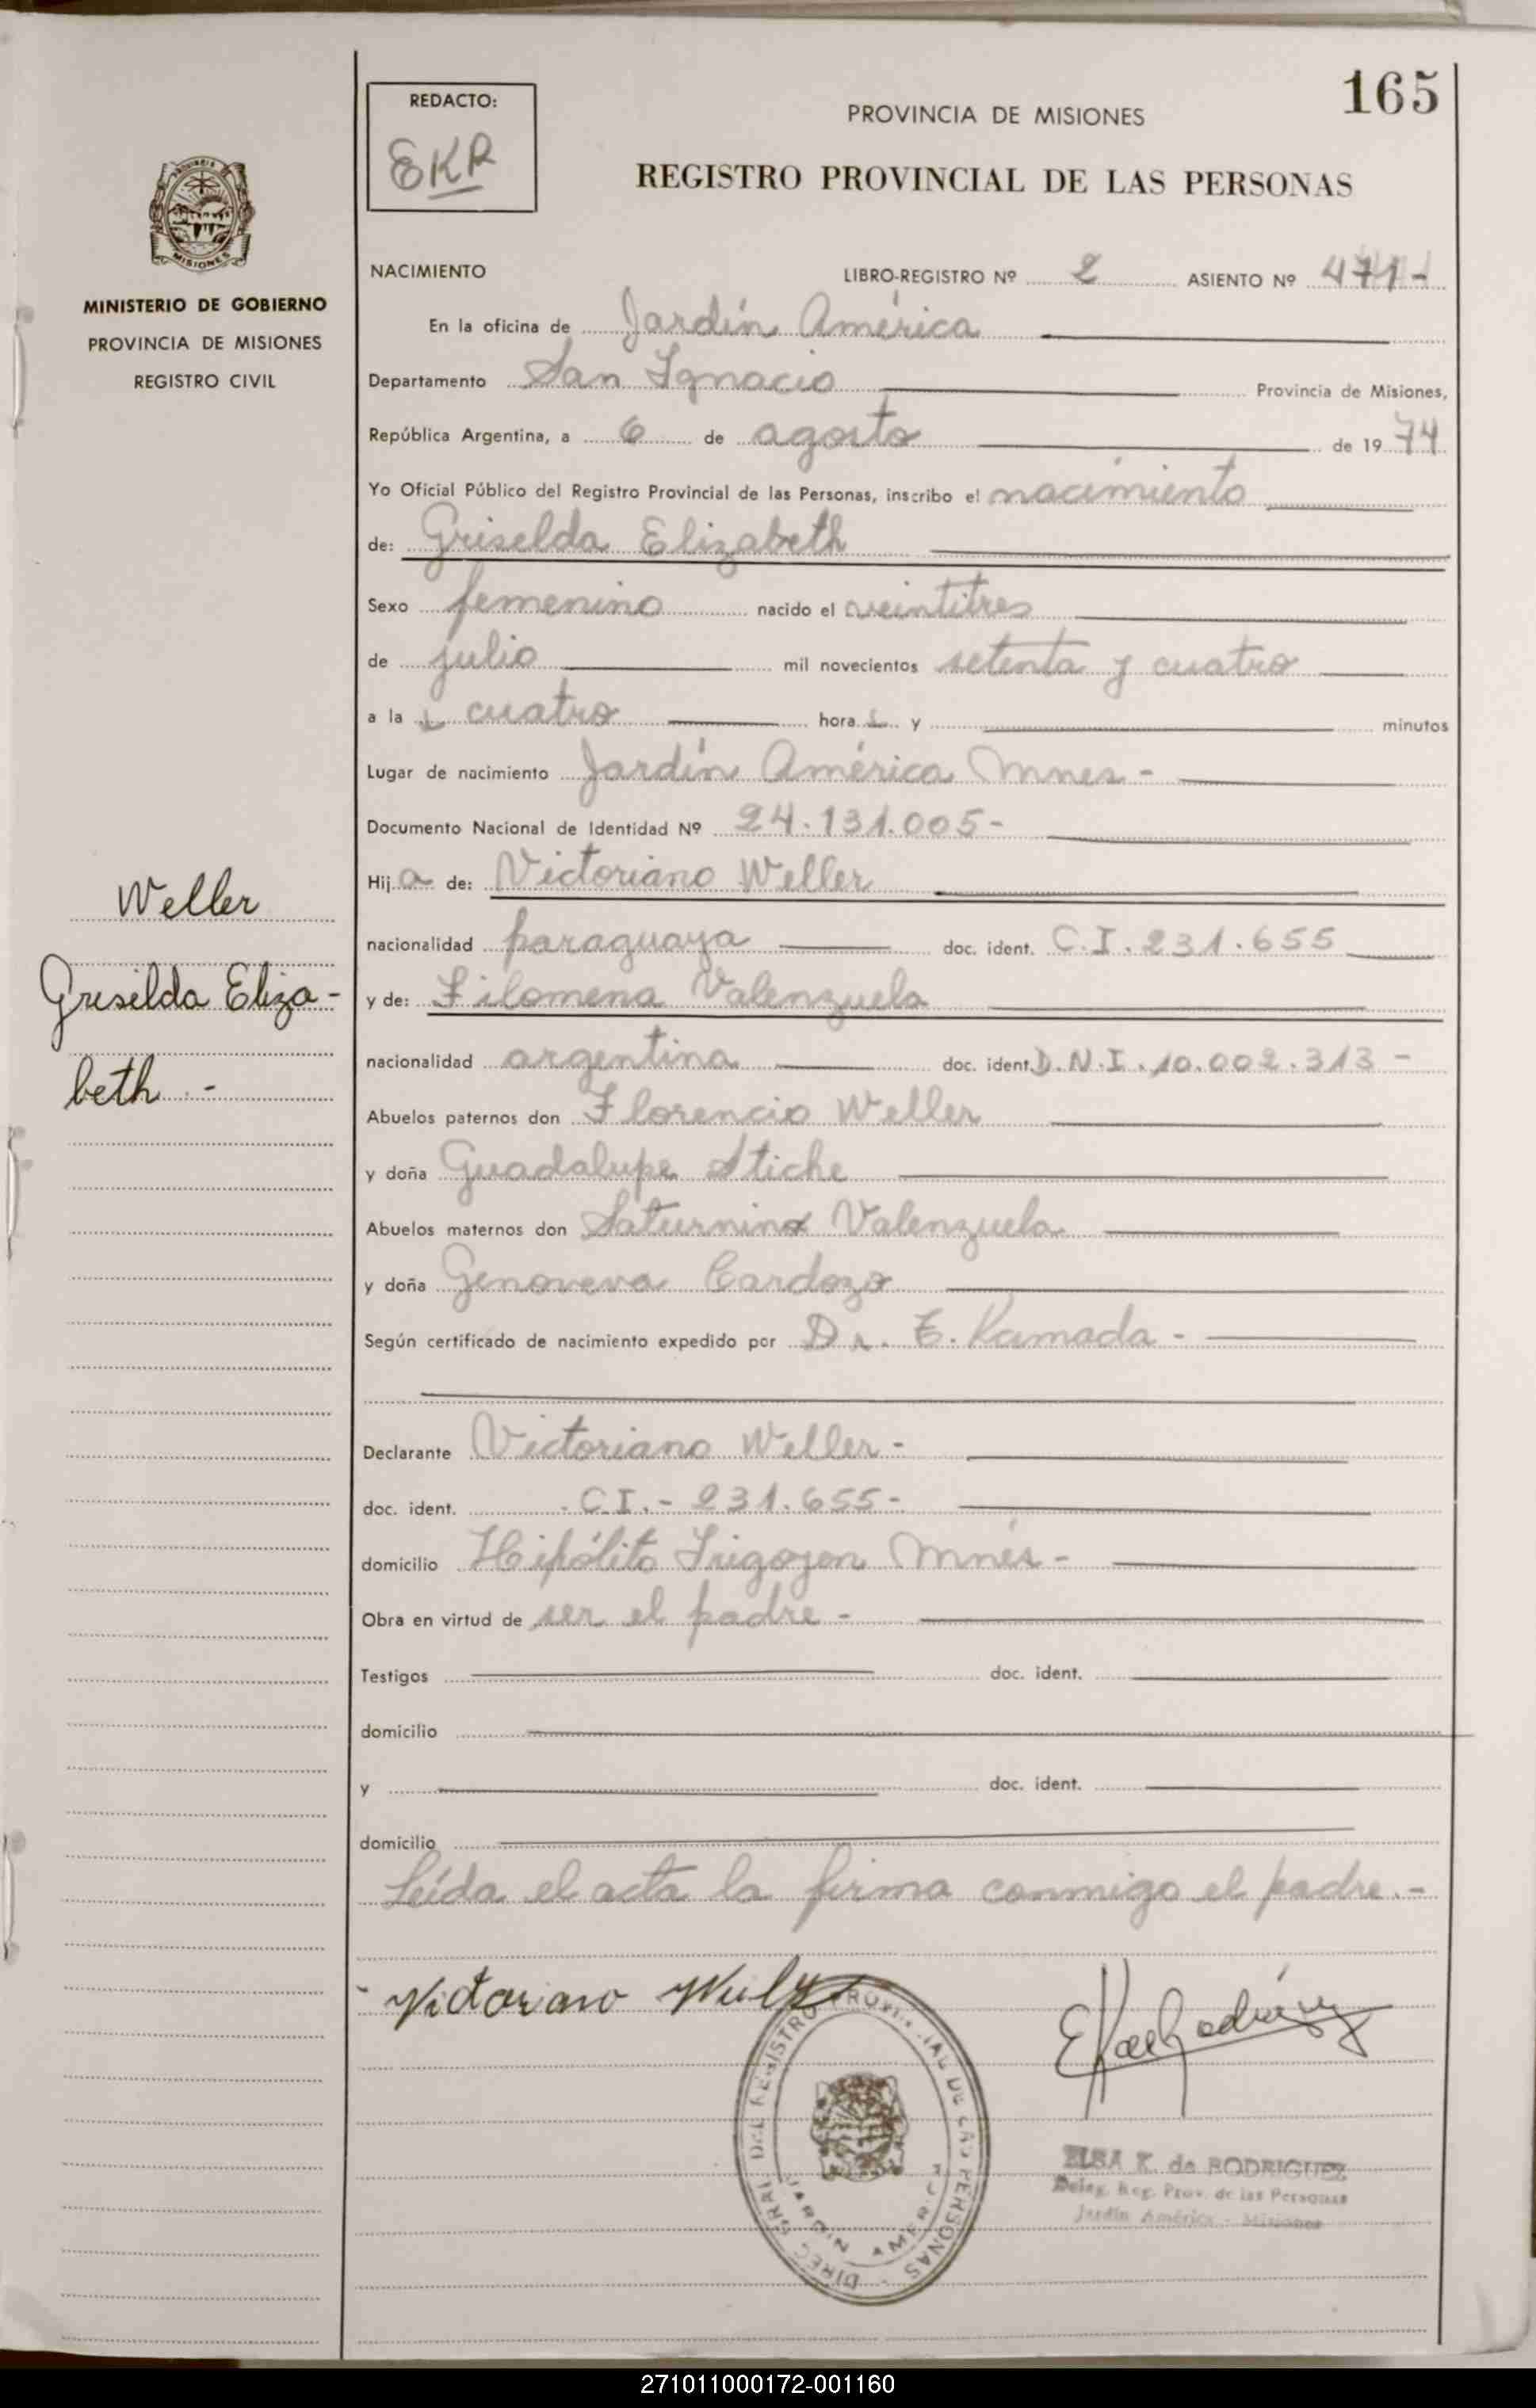 165
REDACTO:
EKR
PROVINCIA DE MISIONES
REGISTRO PROVINCIAL DE LAS PERSONAS
MISIONES
MINISTERIO DE GOBIERNO
PROVINCIA DE MISIONES
REGISTRO CIVIL
NACIMIENTO LIBRO-REGISTRO Nº 2 ASIENTO Nº 471-
En la oficina de Jardín América
Departamento San Ignacio Provincia de Misiones,
República Argentina, a 6 de agosto de 1974
Yo Oficial Público del Registro Provincial de las Personas, inscribo el nacimiento
de: Griselda Elizabeth
Sexo femenino nacido el veintitres
de julio mil novecientos setenta y cuatro
a las cuatro horas y minutos
Lugar de nacimiento Jardín América Mnes-
Documento Nacional de Identidad Nº 24.131.005-
Hija de: Victoriano Weller
nacionalidad paraguaya doc. ident. C.I. 231.655
y de: Filomena Valenzuela
nacionalidad argentina doc. ident. D.N.I. 10.002.313-
Abuelos paternos don Florencio Weller
y doña Guadalupe Stiche
Abuelos maternos don Saturnino Valenzuela
y doña Genoveva Cardozo
Según certificado de nacimiento expedido por Dr. E. Kamada-
Declarante Victoriano Weller-
doc. ident. C.I.- 231.655-
domicilio Hipólito Irigoyen Mnes-
Obra en virtud de ser el padre-
Testigos doc. ident.
domicilio
y doc. ident.
domicilio
Leída el acta la firma conmigo el padre.-
Weller
Griselda Eliza-
beth.-
Victoriano
DIREC. GRAL. DEL REGISTRO PROVINCIAL DE LAS PERSONAS
JARDIN AMERICA
ELSA K. de RODRIGUEZ
Deleg. Reg. Prov. de las Personas
Jardín América - Misiones
271011000172-001160